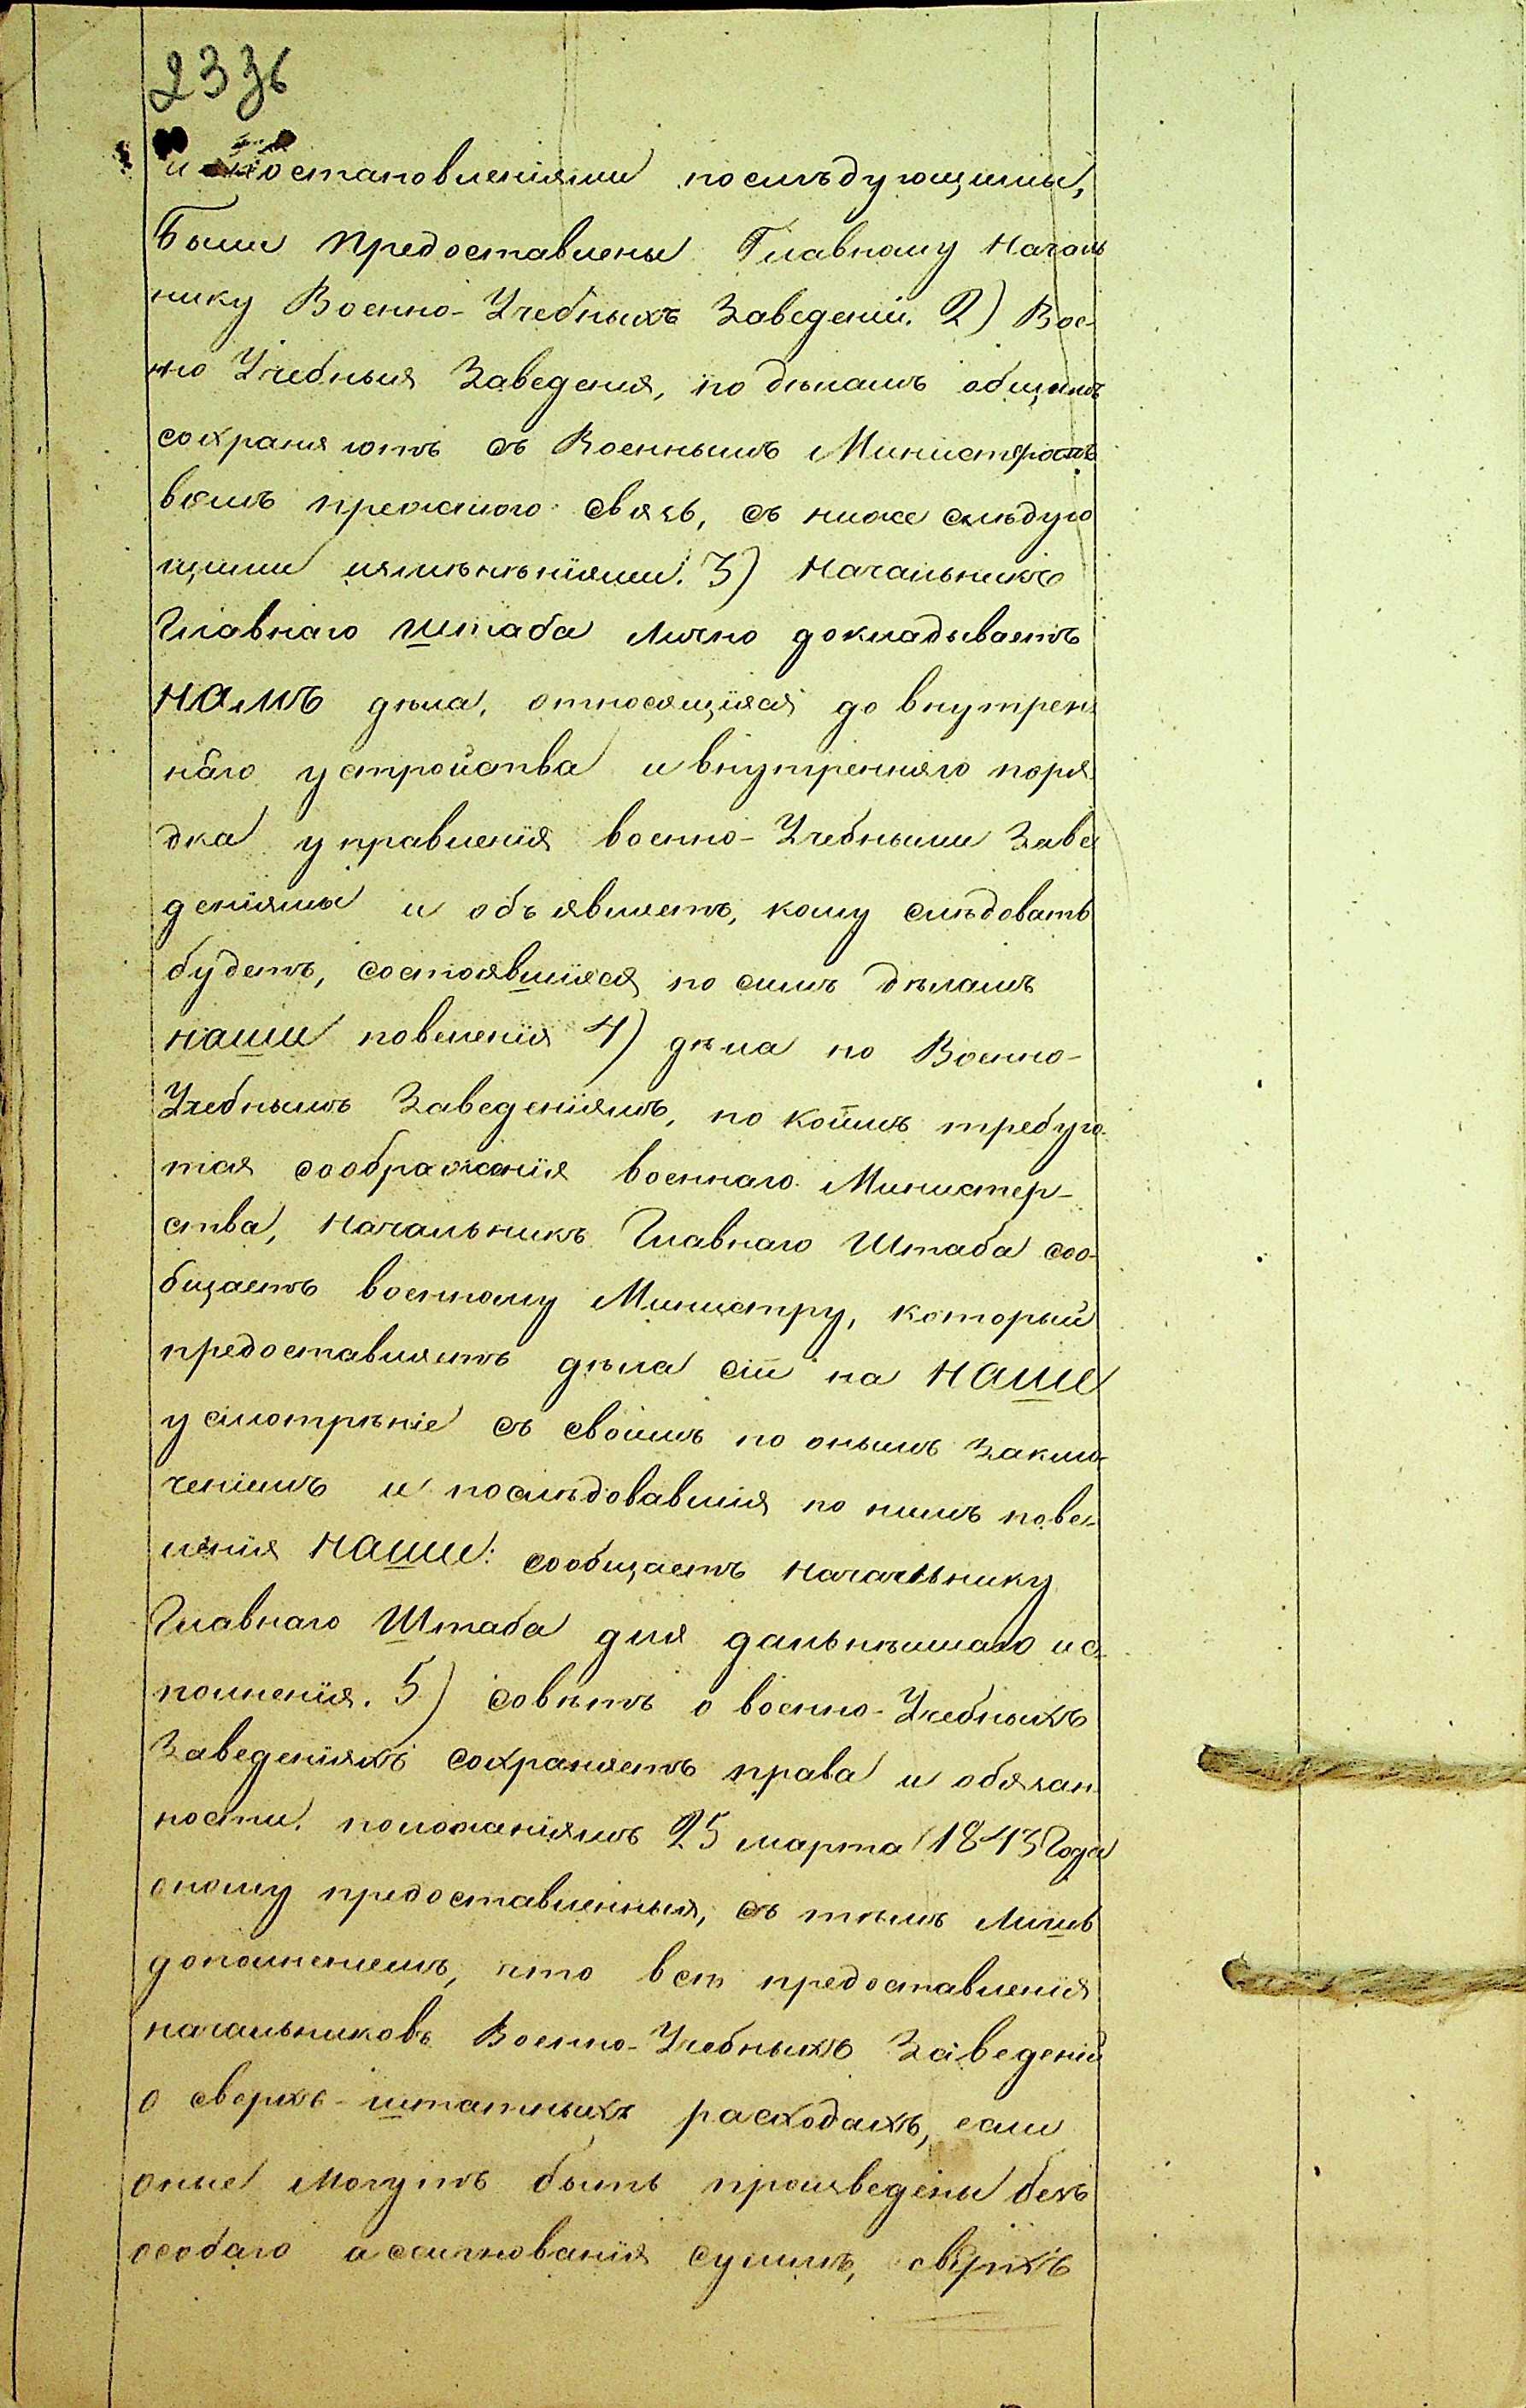 233б
и постановленіями послѣдующими,
были предоставлены Главному Началь
нику Военно-Учебныхъ Заведеній. 2) Вое-
нно Учебныя Заведенія, по дѣламъ общимъ
сохраняютъ съ Военнымъ Министерст
вомъ прежнюю связь, съ ниже слѣдую
щими измѣненіями. 3) Начальникъ
Главнаго Штаба лично докладываетъ
НАМЪ дѣла, относящіяся до внутрен-
няго устройства и внутренняго поря
дка управленія военно-Учебными Заве
деніями и объявляетъ, кому слѣдовать
будетъ, состоявшіяся по симъ дѣламъ
НАШИ повеленія 4) дѣла по Военно-
Учебнымъ Заведеніямъ, по коимъ требую
тся соображенія военнаго Министер-
ства, Начальникъ Главнаго Штаба соо-
бщаетъ военному Министру, который
предоставляетъ дѣла сіи на НАШЕ
усмотрѣніе съ своимъ по онымъ заклю-
ченіемъ и послѣдовавшія по нимъ пове-
ленія НАШИ: сообщаетъ Начальнику
Главнаго Штаба для дальнѣйшаго ис-
полненія. 5) совѣтъ о военно-Учебныхъ
Заведеніяхъ сохраняетъ права и обязан
ности. положеніямъ 25 марта 1843 Года
оному предоставленныя, съ тѣмъ лишь
дополненіемъ, что всѣ предоставленія
начальниковъ Военно-Учебныхъ Заведеній
о сверхъ-штатныхъ расходахъ, если
оные могутъ быть произведены безъ
особаго ассигнованія суммъ, сверхъ